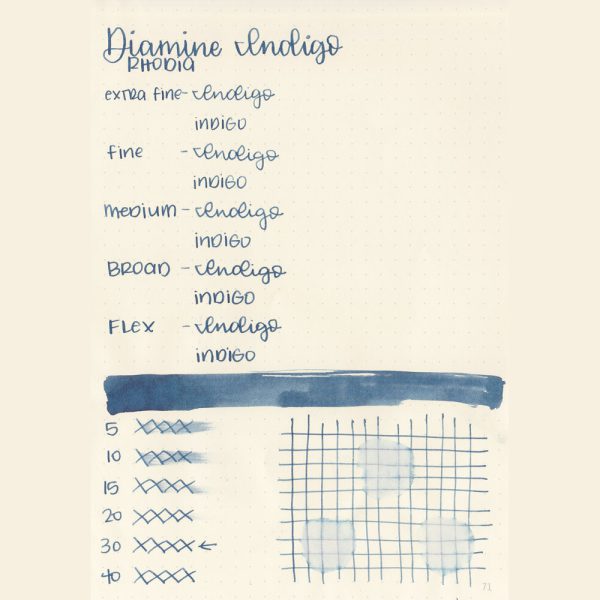 Diamine Indigo
RHODIA
extra fine - Indigo
INDIGO
fine - Indigo
INDIGO
medium - Indigo
INDIGO
BROAD - Indigo
INDIGO
FLEX - Indigo
INDIGO
5 XXXX
10 XXXX
15 XXXX
20 XXXX
30 XXXX ←
40 XXXX